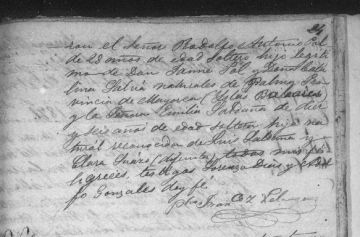 24
ron el Señor Rodolfo Antonio Sol
de 28 años de edad soltero hijo legiti
mo de Don Jaime Sol y Doña Cata
lina naturales de Palma Pro
vincia de Mayorca (Yslas Baleares
y la Señora Emilia de diez
y seis años de edad soltera hija na
tural reconocida de Luis y
Clara Juares (difunta) todos mis fe
ligreces, testigos Lorenzo Dias y
fo Gonzales doy fé.
Pbro Franco Z